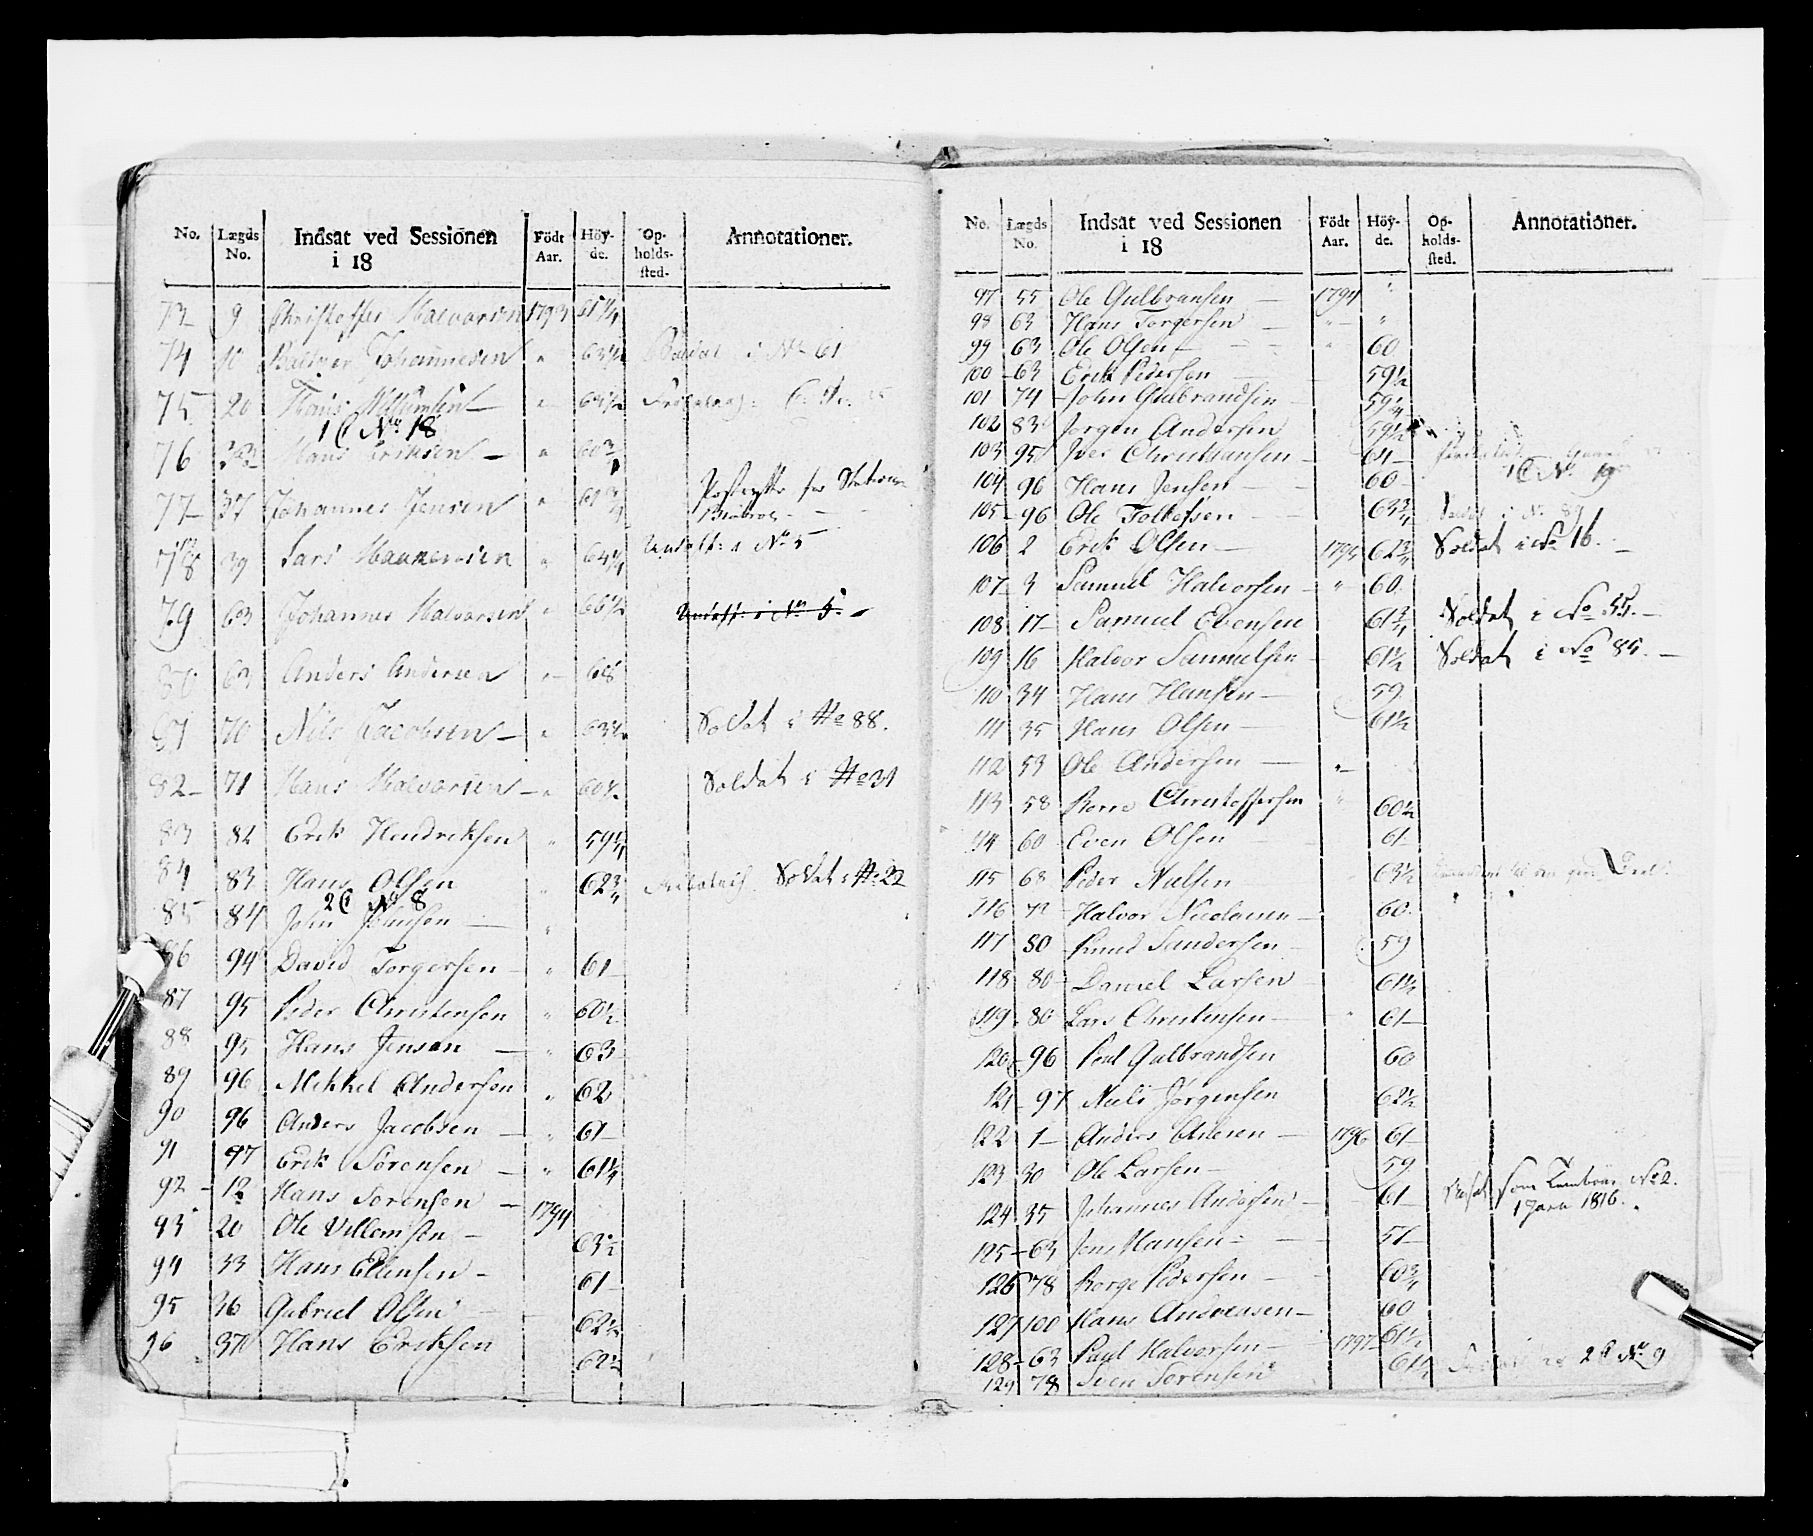 No. Lægds No. Indsat ved Sessionen i 18 Födt Aar. Höy-de. Op-holds-sted. Annotationer.
73 9 Christoffer Halvorsen 1793 61 1/4
74 10 Johannesen " 63 1/2 Soldat i No 61
75 20 Hans Willumsen " 64 1/2
1 C No 18
76 33 Hans Eriksen " 60 3/4
77 37 Johannes Jensen " 61 3/4
78 39 Lars " 64 1/4 i No 5
79 63 Johannes Halvorsen " 66 1/2 i No 5.
80 63 Anders Andersen " 68
81 70 Nils Jacobsen " 63 1/2 Soldat i No 88.
82 71 Hans Halvorsen " 60 1/2 Soldat i No 31
83 82 Erik Hendriksen " 59 1/4
84 83 Hans Olsen " 62 3/4 Soldat i No 22
2 C No 8
85 84 John "
86 94 David Torgersen " 61
87 95 Peder Christensen " 60 1/2
88 95 Hans Jensen " 63
89 96 Mikkel Andersen " 62
90 96 Anders Jacobsen " 61
91 97 Erik Sörensen " 61 1/4
92 12 Hans Sörensen 1794
93 20 Ole Villemsen 63 1/2
94 33 Hans Ellensen 61
95 36 Gabriel Olsen 62 1/2
96 37 Hans Eriksen 62 1/2
No. Lægds No. Indsat ved Sessionen i 18 Födt Aar. Höy-de. Op-holds-sted. Annotationer.
97 55 Ole Gulbransen 1794 "
98 63 Hans Torgersen " "
99 63 Ole Olsen " 60
100 63 Erik Pedersen 59 1/2
101 74 John Gulbrandsen 59 1/4
102 83 Jörgen Andersen 59 1/2
103 95 Iver Christiansen 61
1 C No 19
104 96 Hans Jensen 60
105 96 Ole Tollefsen 63 3/4 i No 89
106 2 Erik Olsen 1795 62 3/4 Soldat i No 16.
107 3 Samuel Halvorsen " 60
108 17 Samuel Evensen 61 3/4 Soldat i No 55.
109 16 Halvor Samuelsen 61 1/2 Soldat i No 85.
110 34 Hans Hansen 59
111 35 Hans Olsen 61 1/2
112 53 Ole Andersen "
113 58 Christoffersen 60 1/2
114 60 Even Olsen 61
115 68 Peder Nielsen 63 1/2
116 Halvor Nicolaisen 60
117 80 Knud Sandersen 59
118 80 Daniel Larsen 61 1/2
119 80 Lars Christensen 61
120 96 Poul Gulbrandsen 60
121 97 Niels Jörgensen 62 1/2
122 1 Anders 1796 61
123 30 Ole Larsen 59
124 35 Johannes Andersen 61 som Tambour No 2.
1 Janu 1816.
125 63 Jens Hansen 57
126 78 Borge Pedersen 60 3/4
127 100 Hans Andreasen 60
128 63 Paul Halvorsen 1797 61 1/2
129 78 Sven Sörensen 61 1/2 2 C No 9